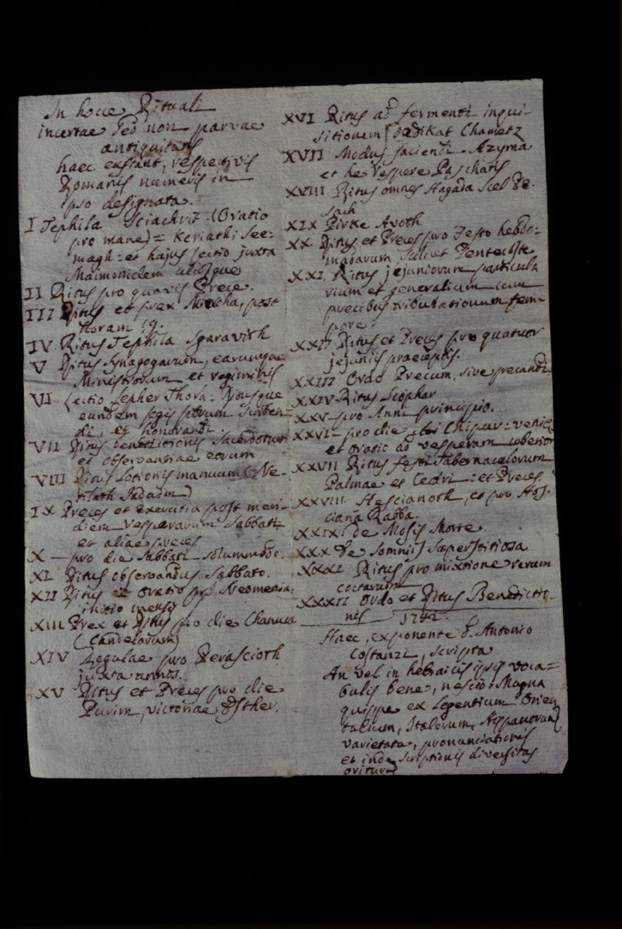 In hocce Rituali
incertae sed non parvae
antiquitatis
haec exstant, respectivis
Romanis numeris in
ipso designata.
I Tephila Sciachrit (Oratio
pro mane) = Keriath See-
magh: et hujus lectio juxta
Maimonidem
II Ritus pro quavis Prece.
III Ritus et prex Mincha, post
horam 19.
IV Ritus Tephila Sgaravith
V Ritus Synagogarum, earumque
Ministrorum et regiminis
VI Lectio Sepher Thora: Ritusque
eundem legis
et honorandi.
VII Ritus benedictionis Sacerdotum
et observantiae eorum
VIII Ritus Lotionis manuum (Ne-
tilath Jadaim)
IX Preces et exercitia post meri-
diem Vesperarum Sabbati
et aliae preces
X — pro die Sabbati solummodo.
XI Ritus observandus Sabbato.
XII Ritus et Oratio pro Neomenia,
initio mensis
XIII Prex et Ritus pro die Chanuca
(Candelarum)
XIV Regulae pro Perascioth
juxta annos.
XV Ritus et Preces pro die
Purim, victoriae Esther.
XVI Ritus ad fermenti inqui-
sitionem Bedikat Chametz
XVII Modus faciendi Azyma
et de Vespere Paschatis
XVIII Ritus omnes Hagada Scel Pe-
sach
XIX Pirke Avoth
XX Ritus et Preces pro Festo hebdo-
madarum Pentecoste
XXI Ritus jejuniorum particula
rium et generalium cum
precibus tribulationum tem
pore
XXII Ritus et Preces pro quatuor
jejuniis praeceptis.
XXIII Ordo Precum, sive precandi
XXIV Ritus Sciophar
XXV — pro Anni principio.
XXVI — pro die Chipur: veniae
et Oratio ad vesperam uberior
XXVII Ritus festi Tabernaculorum
Palmae et Cedri: et Preces
XXVIII Hoscianoth, et pro Hos
ciana Rabba.
XXIX De Mosis Morte.
XXX De Somniis Superstitiosa
XXXI Ritus pro mixtione rerum
coctarum
XXXII Ordo et Ritus Benedictio
nis
Haec, exponente D. Antonio
Costanzi, scripta
An vel in hebraicis ipsis voca-
bulis bene, nescio: Magna
quippe ex legentium Orien
talium, Italorum, Hispanorum
varietate, pronunciationis
et inde scriptionis diversitas
oritur